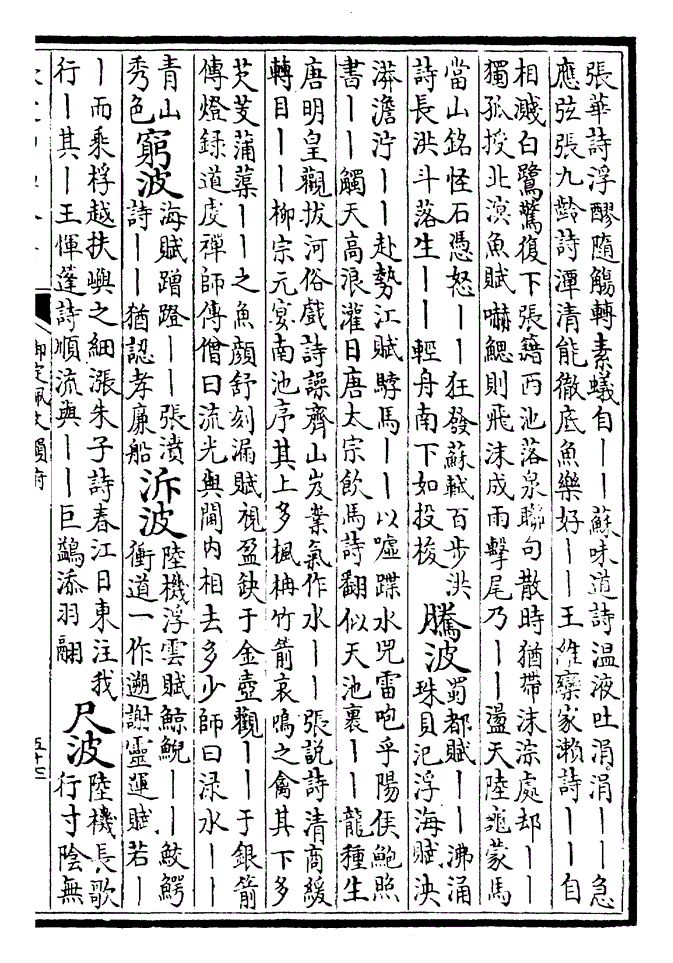 張華詩浮醪隨觴轉素蟻自丨丨蘇味道詩温液吐涓涓丨丨急
應弦張九齡詩潭清能徹底魚樂好丨丨王維欒家瀨詩丨丨自
相濺白鷺驚復下張籍西池落泉聯句散時猶帶沫淙處却丨丨
獨孤授北溟魚賦嚇鰓則飛沫成雨擊尾乃丨丨盪天陸龜蒙馬
當山銘怪石憑怒丨丨狂發蘇軾百步洪
詩長洪斗落生丨丨輕舟南下如投梭
騰波
蜀都賦丨丨沸涌
珠貝氾浮海賦泱
漭澹泞丨丨赴勢江賦䮫馬丨丨以噓蹀水兕雷咆乎陽侯鮑照
書丨丨觸天高浪灌日唐太宗飲馬詩翻似天池裏丨丨龍種生
唐明皇觀拔河俗戲詩譟齊山岌嶪氣作水丨丨張説詩清商緩
轉目丨丨柳宗元宴南池序其上多楓柟竹箭哀鳴之禽其下多
芡芰蒲蕖丨丨之魚顔舒刻漏賦視盈缺于金壺觀丨丨于銀箭
傳燈録道䖍禪師傳僧曰流光與閫内相去多少師曰渌水丨丨
青山
秀色
窮波
海賦蹭蹬丨丨張濆
詩丨丨猶認孝廉船
泝波
陸機浮雲賦鯨鯢丨丨鮫鰐
衝道一作遡謝靈運賦若丨
丨而乘桴越扶嶼之細漲朱子詩春江日東注我
行丨其丨王惲蓬詩順流與丨丨巨鷁添羽翮
尺波
陸機長歌
行寸陰無
御定佩文韻府